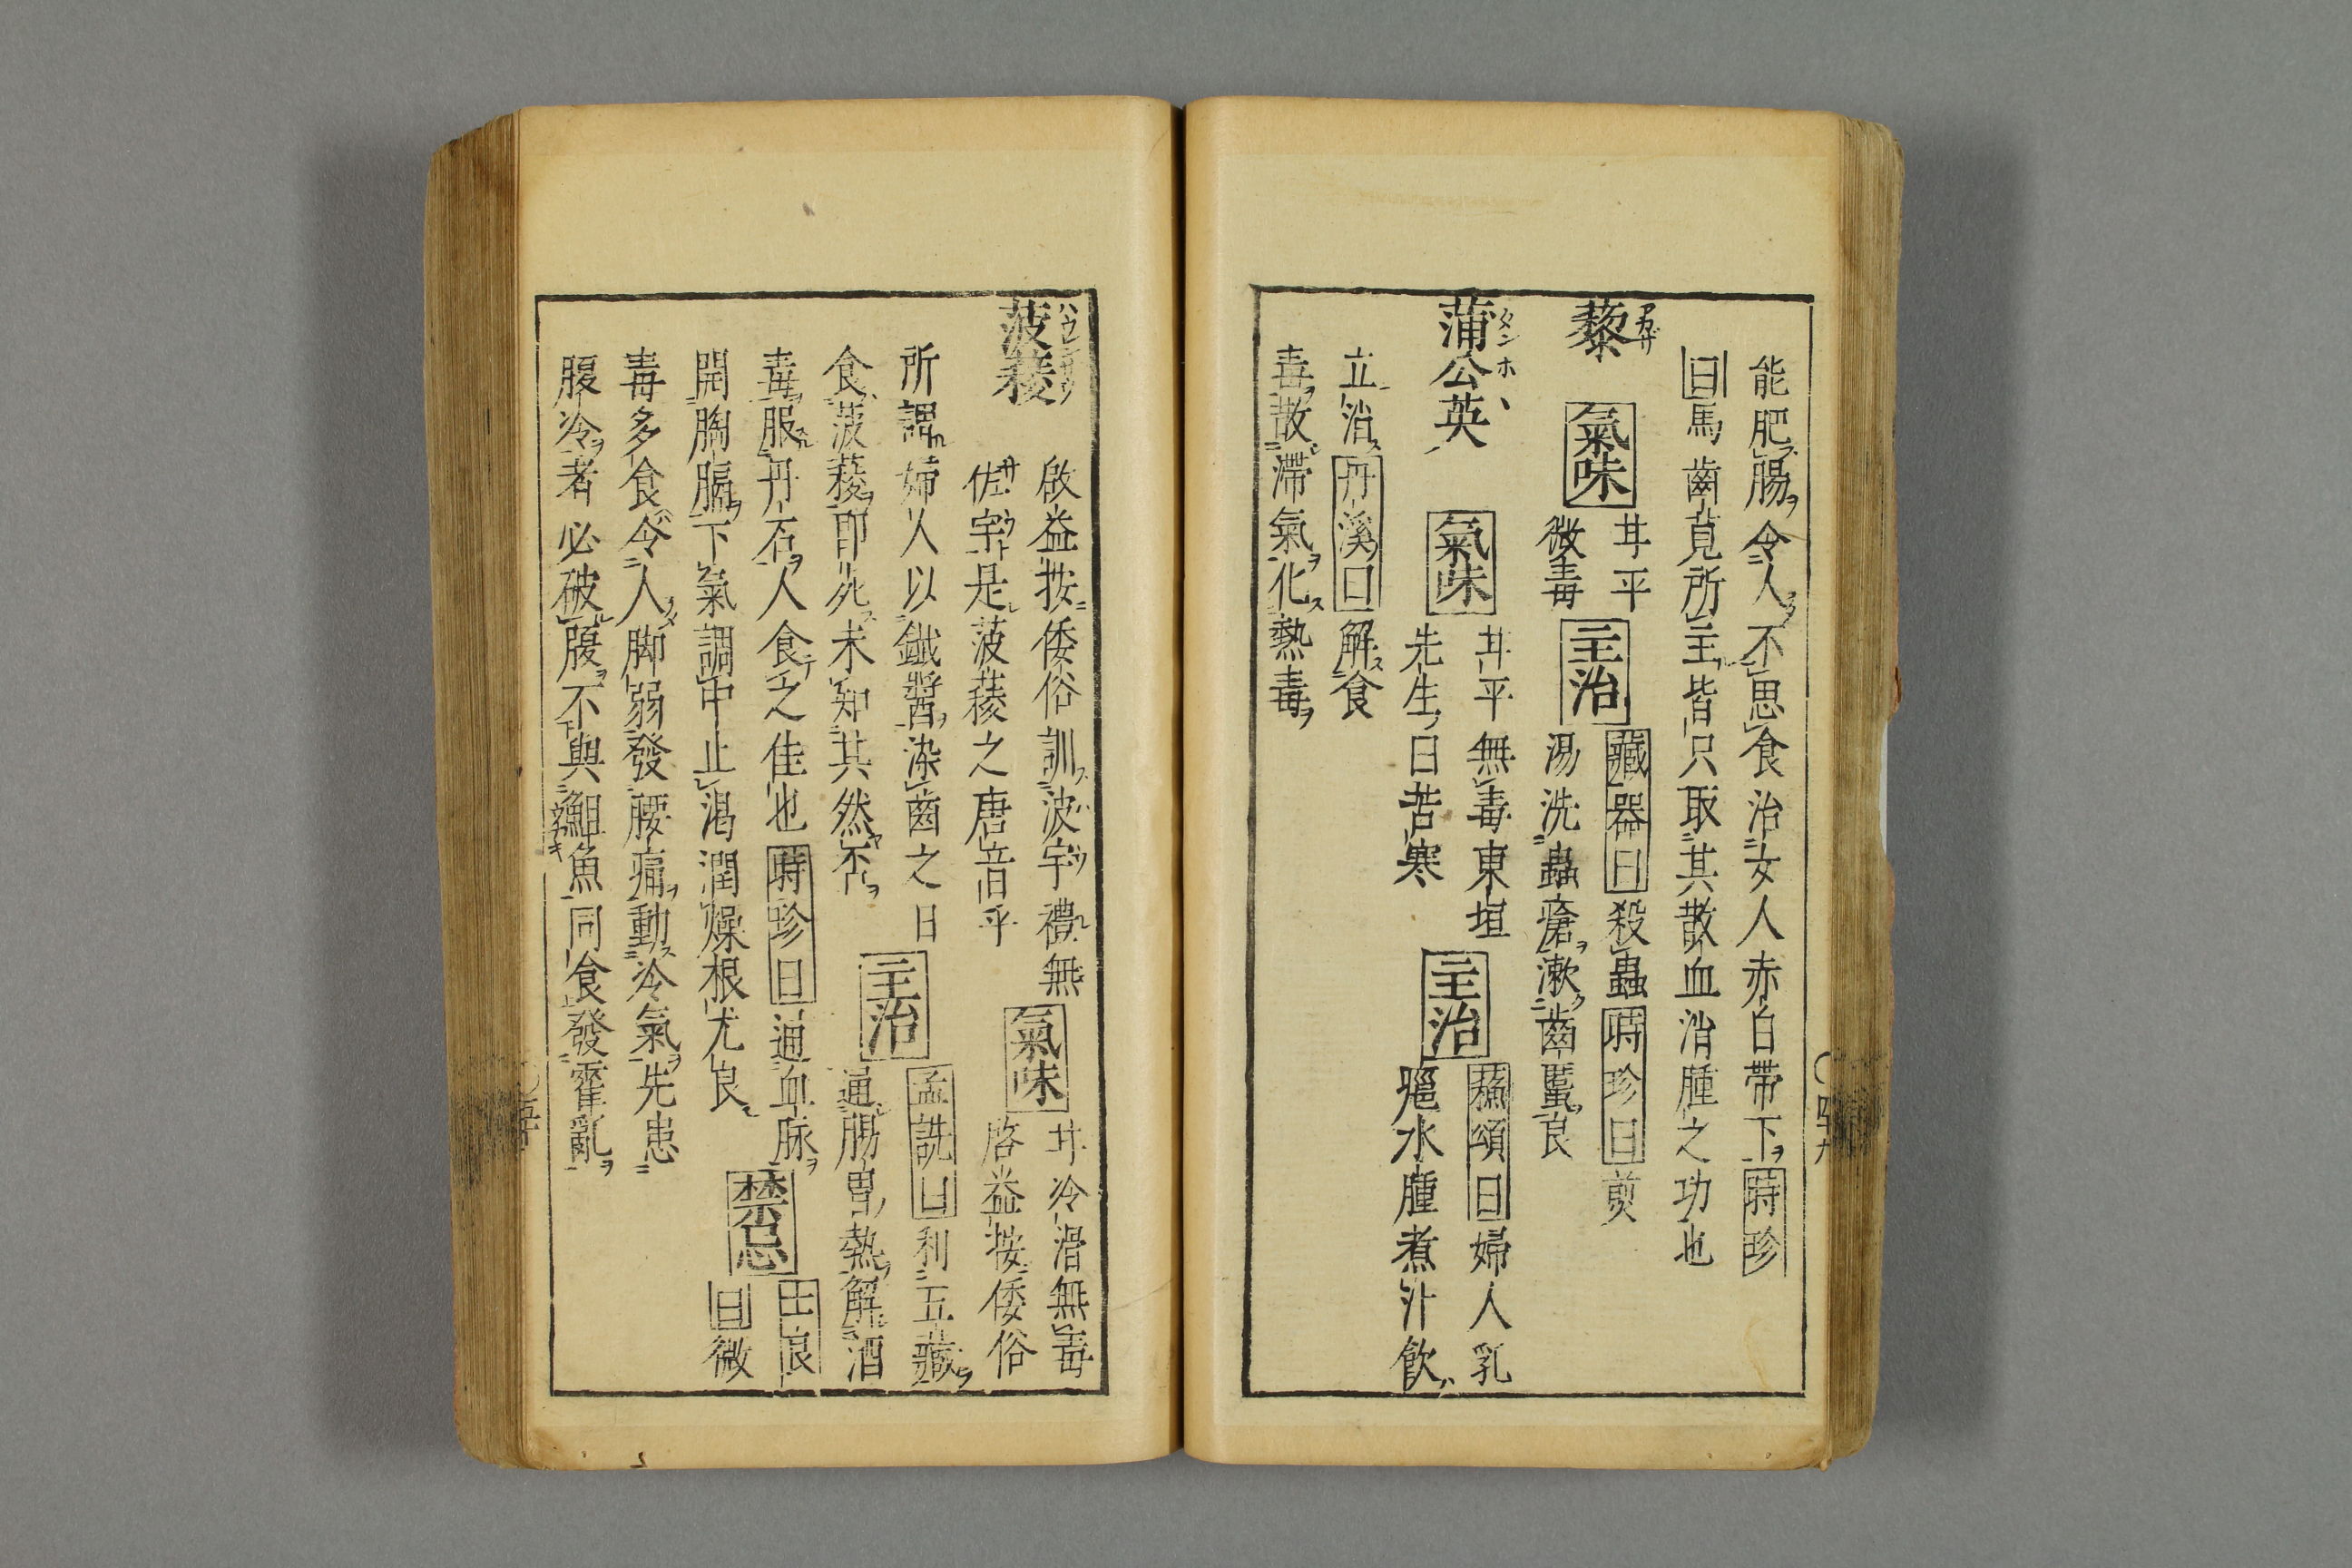 能肥腸令人不思食治女人赤白帶下時珍
曰馬齒莧所主皆只取其散血消腫之功也
藜 アカザ
氣味
甘平
微毒
主治
藏器曰殺蟲時珍曰煎
湯洗蟲瘡漱齒䘌良
蒲公英 タンホヽ
氣味
甘平無毒東垣
先生曰苦寒
主治
蘇頌曰婦人乳
癰水腫煮汁飲
立消丹溪曰解食
毒散滯氣化熱毒
四十九
菠薐
啟益按倭俗訓波宇禮無
佐宇是菠薐之唐音乎
氣味
甘冷滑無毒
啓益按倭俗
所謂婦人以鐵醬染齒之日
食菠薐即死未知其然否
主治
孟詵曰利五藏
通腸胃熱解酒
毒服丹石人食之佳也時珍曰通血脉
開胸膈下氣調中止渴潤燥根尤良
禁忌
士良
曰微
毒多食令人脚弱發腰痛動冷氣先患
腹冷者必破腹不與䱇魚同食發霍亂
五十